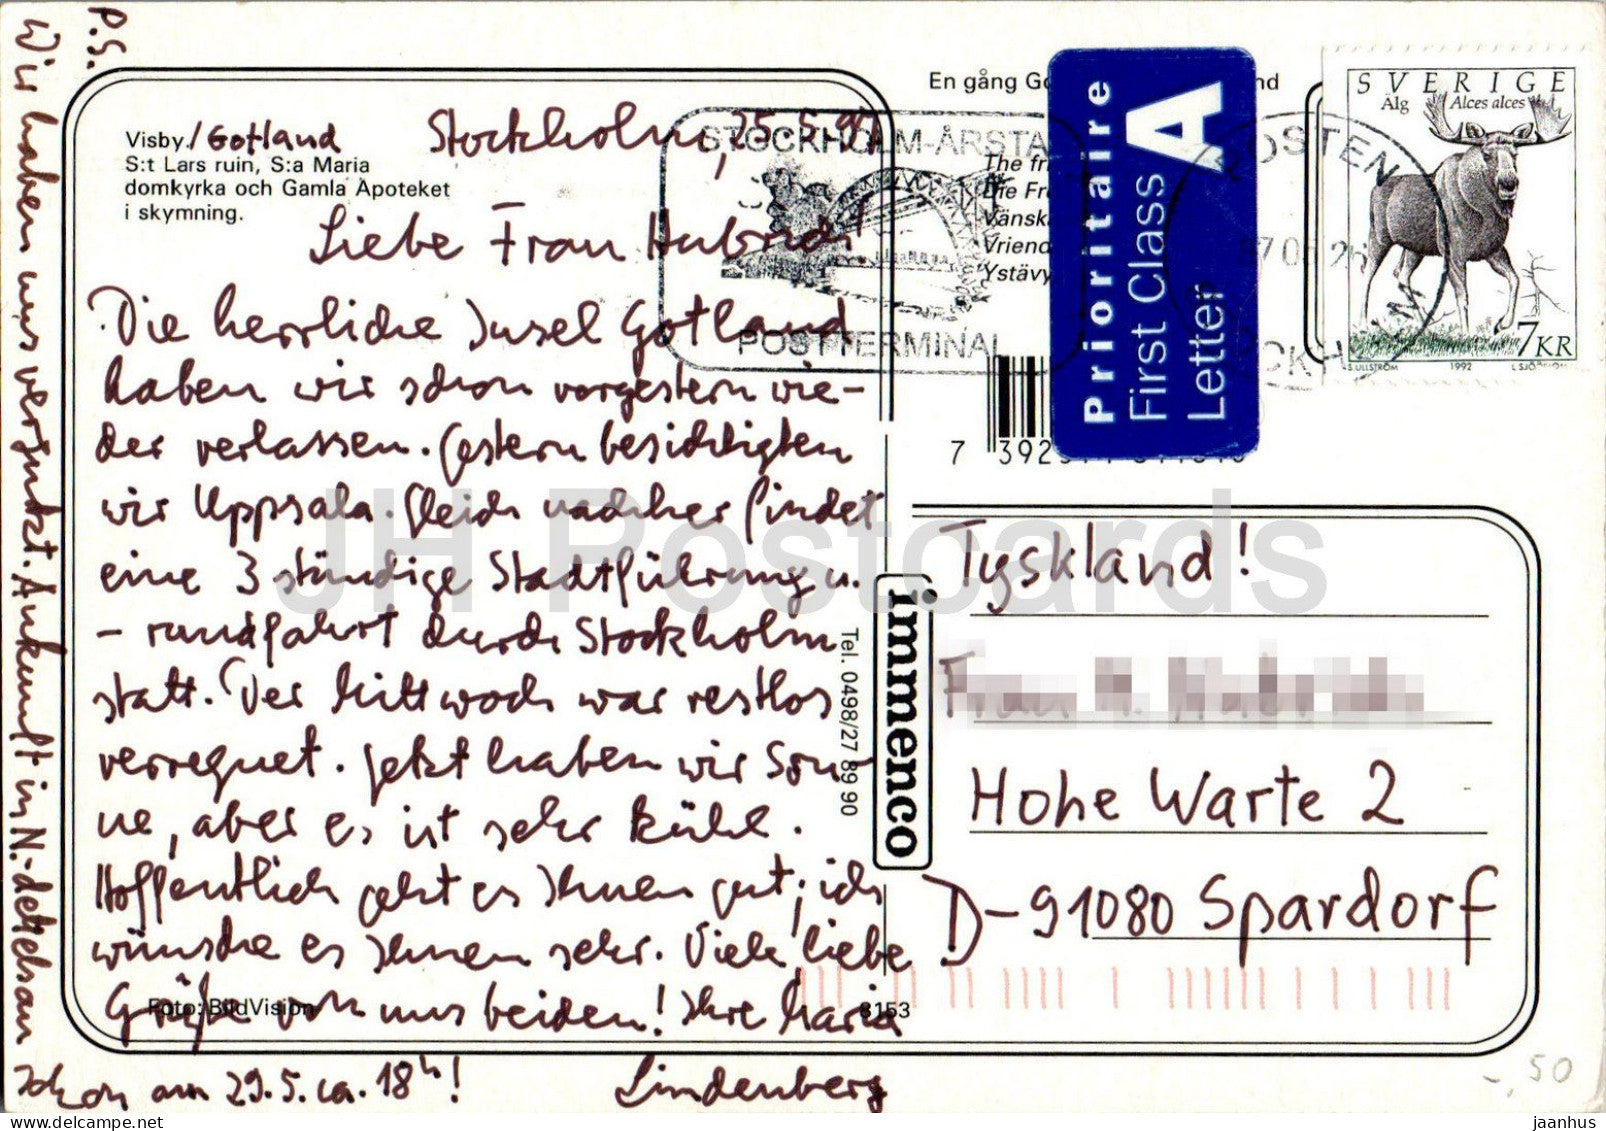 P.S.
Wir haben uns verguckt. Ankunft in N.-dettelsau
schon am 29.5. ca. 18h!
Visby/Gotland
S:t Lars ruin, S:a Maria
domkyrka och Gamla Apoteket
i skymning.
Stockholm, 25.5.
Liebe Frau
Die herrliche Insel Gotland
haben wir schon vorgestern wie-
der verlassen. Gestern besichtigten
wir Uppsala. Gleich nachher findet
eine 3 stündige Stadtführung u.
- rundfahrt durch Stockholm
statt. Der Mittwoch war restlos
verregnet. Jetzt haben wir Son-
ne, aber es ist sehr kühl.
Hoffentlich geht es Ihnen gut; ich
wünsche es Ihnen sehr. Viele liebe
Grüße von uns beiden! Ihre Maria
Lindenberg
Foto: BildVision
8153
STOCKHOLM-ÅRSTA
POSTTERMINAL
En gång Go
nd
The fr
Die Fr
Vänska
Vriend
Ystävy
Prioritaire
First Class
Letter
A
POSTEN
SVERIGE
Älg Alces alces
7KR
S.ULLSTRÖM 1992
7 392
immenco
Tel. 0498/27 89 90
Tyskland!
Frau
Hohe Warte 2
D-91080 Spardorf
-,50
JH Postcards
www.delcampe.net
jaanhus